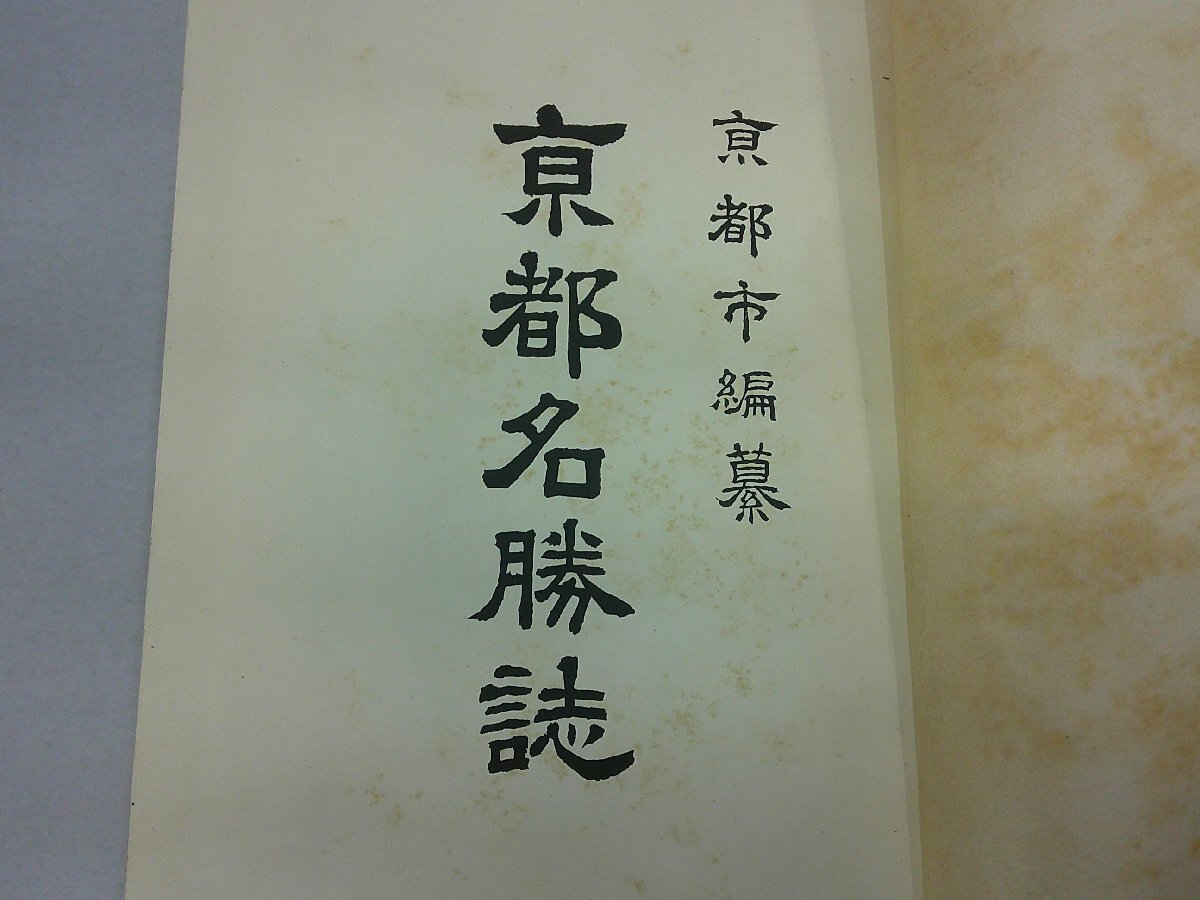 京都市編纂
京都名勝誌